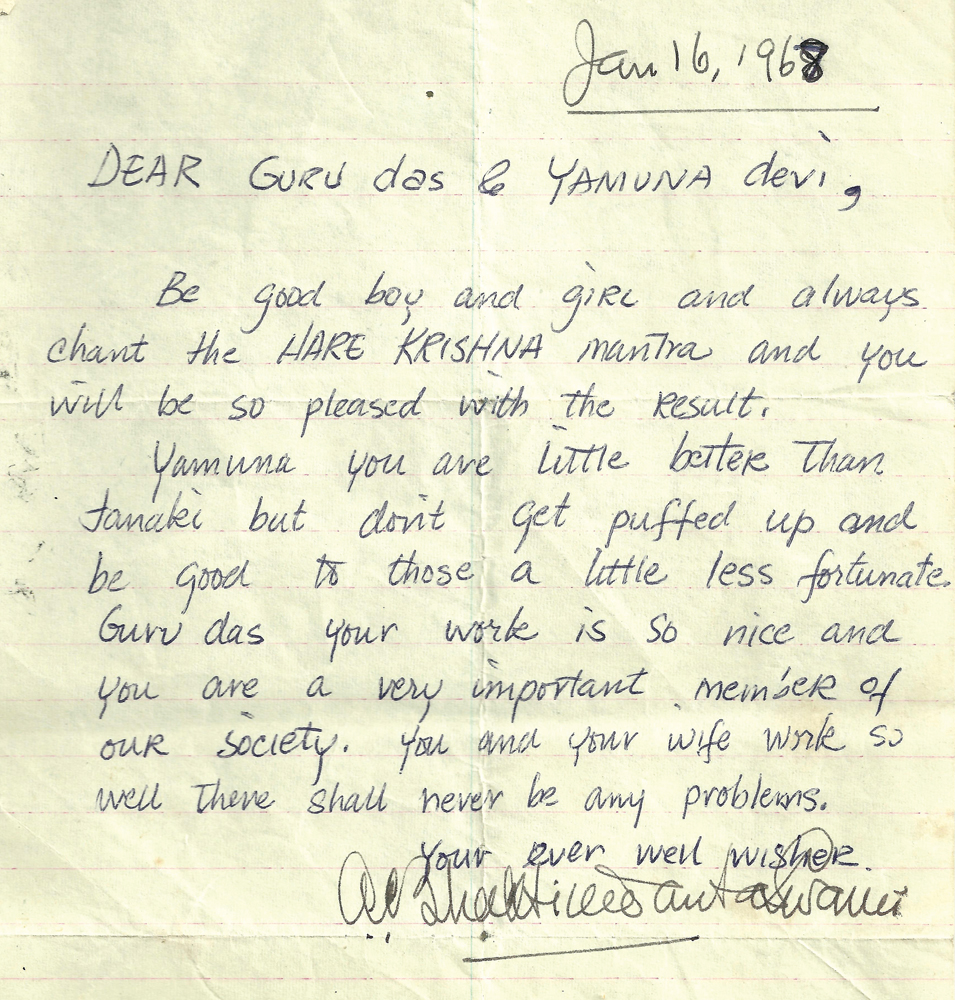 Jan 16, 1968
DEAR GURU das & YAMUNA devi,
Be good boy and girl and always
chant the HARE KRISHNA mantra and you
will be so pleased with the result.
Yamuna you are little better than
Janaki but don't get puffed up and
be good to those a little less fortunate.
Guru das your work is so nice and
you are a very important member of
our society. You and your wife work so
well there shall never be any problems.
Your ever well wisher.
A.C. Bhaktivedanta Swami